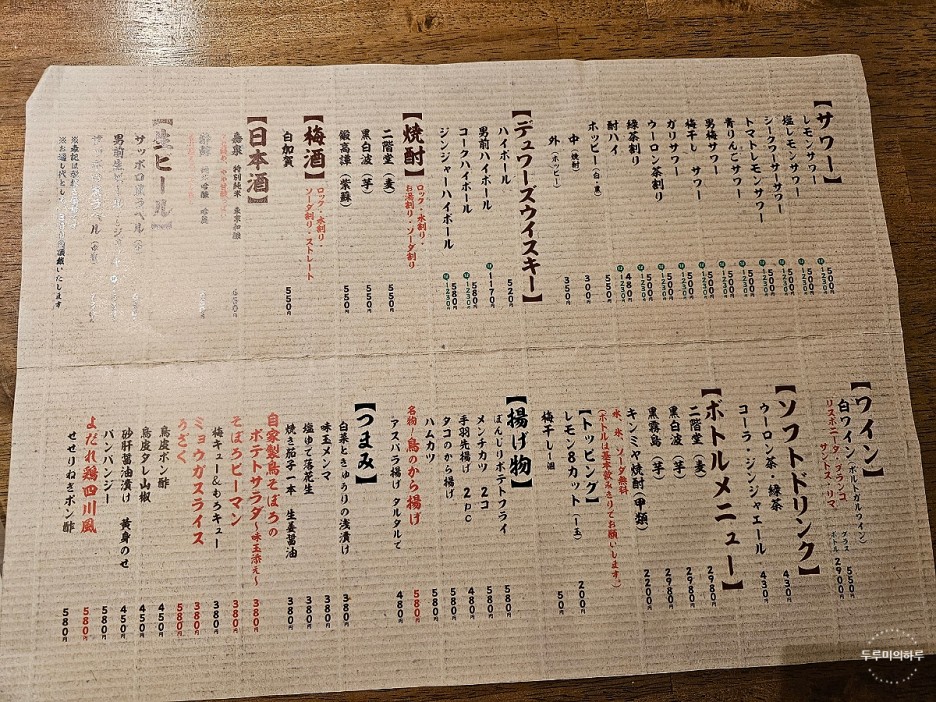 【サワー】
レモンサワー 500円
塩レモンサワー 500円
シークワーサーサワー 500円
トマトレモンサワー 500円
青りんごサワー 500円
男梅サワー 500円
梅干し サワー 500円
ガリサワー 500円
ウーロン茶割り 500円
緑茶割り 500円
酎ハイ 480円
ホッピー(白・黒) 550円
中(焼酎) 300円
外(ホッピー) 350円
【デュワーズウイスキー】
ハイボール 520円
男前ハイボール 1170円
コークハイボール 580円
ジンジャーハイボール 580円
【焼酎】
ロック・水割り・
お湯割り・ソーダ割り
二階堂(麦) 550円
黒白波(芋) 550円
鍛高譚(紫蘇) 550円
【梅酒】
ロック・水割り
ソーダ割り・ストレート
白加賀 550円
【日本酒】
特別純米
【生ビール】
サッポロ黒ラベル
男前生ビール
【ワイン】
白ワイン(ポルトガルワイン) グラス 550円
ボトル 2900円
【ソフトドリンク】
ウーロン茶 緑茶 430円
コーラ・ジンジャエール 430円
【ボトルメニュー】
二階堂(麦) 2980円
黒白波(芋) 2980円
黒霧島(芋) 2980円
キンミヤ焼酎(甲類) 2200円
水、氷、ソーダ無料
(ボトルは基本飲みきりでお願いします。)
【トッピング】
レモン8カット(一玉) 200円
梅干し一個 50円
【揚げ物】
ぼんじりポテトフライ 580円
メンチカツ 2コ 580円
手羽先揚げ 2pc 480円
タコのから揚げ 580円
ハムカツ 580円
名物!鳥のから揚げ 580円
アスパラ揚げ タルタルで 480円
【つまみ】
白菜ときゅうりの浅漬け 380円
味玉メンマ 380円
塩ゆで落花生 380円
焼き茄子一本 生姜醤油 380円
自家製鳥そぼろの
ポテトサラダ〜味玉添え〜 380円
そぼろピーマン 380円
梅キュー&もろキュー 380円
ミョウガスライス 380円
うざく 580円
鳥皮ポン酢 450円
鳥皮タレ山椒 450円
砂肝醤油漬け 黄身のせ 450円
バンバンジー 580円
よだれ鶏四川風 580円
せせりねぎポン酢 580円
두루미의하루